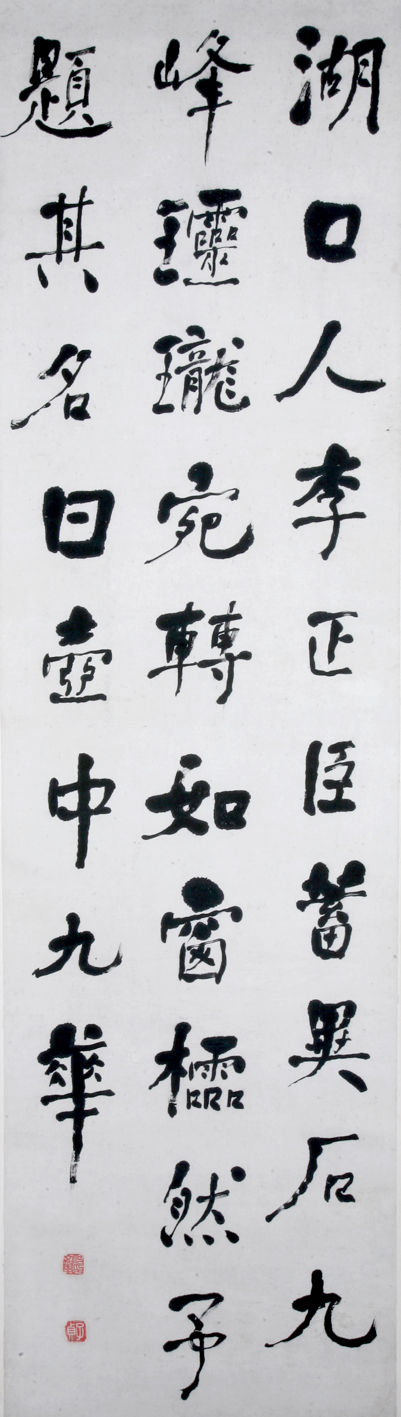 湖口人李正臣蓄異石九
峰瓏宛轉如窗櫺然予
題其名曰壺中九華